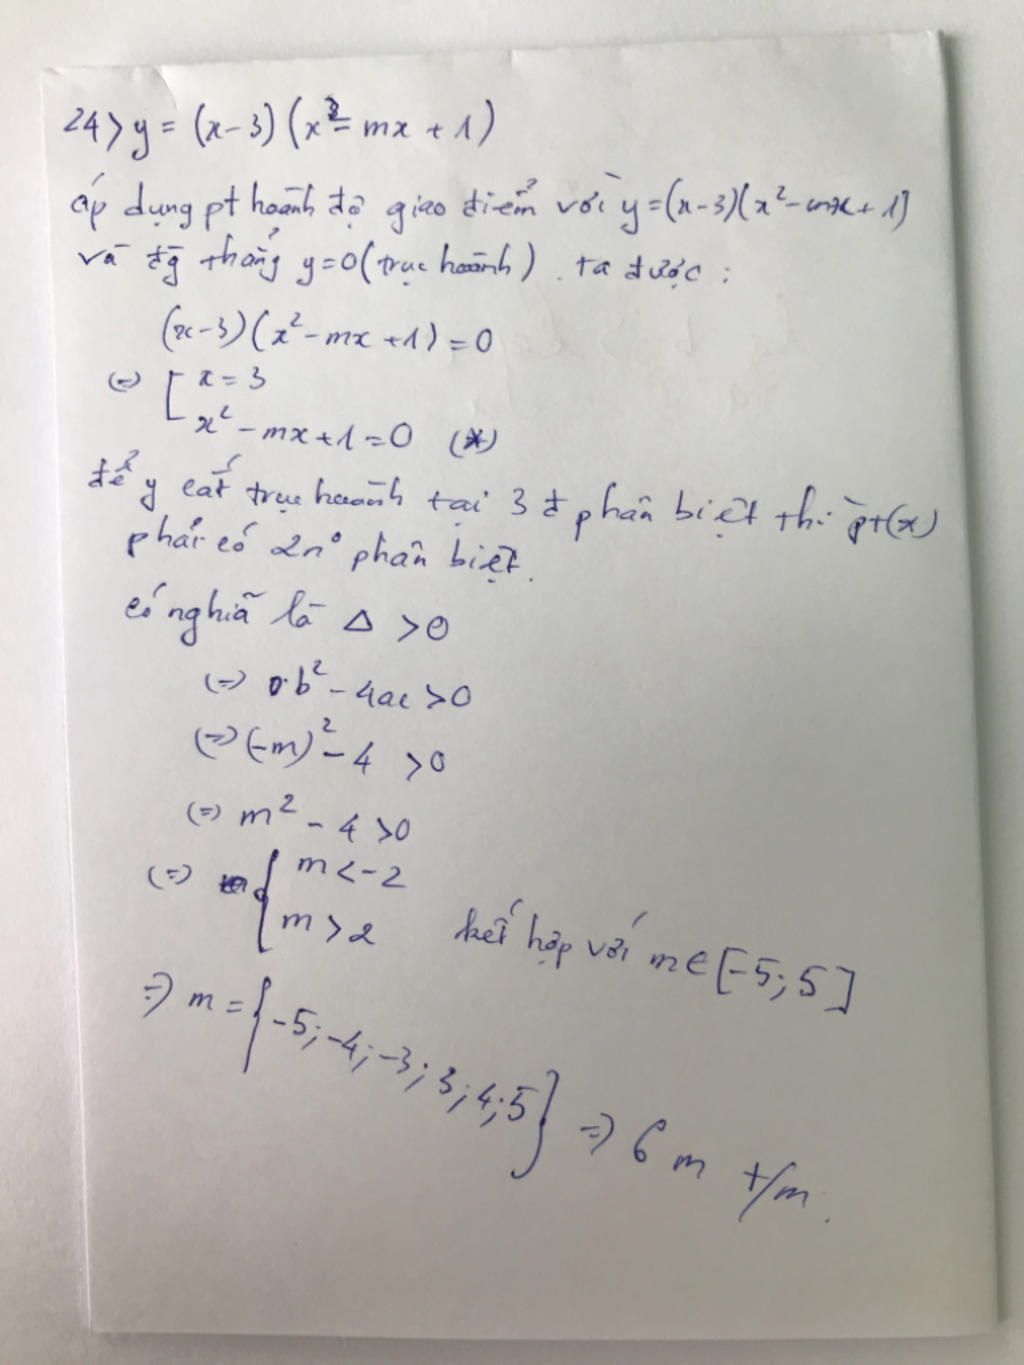 24> y = (x-3)(x² - mx + 1)
áp dụng pt hoành độ giao điểm với y=(x-3)(x²-mx+1)
và đg thẳng y=0 (trục hoành). ta được:
(x-3)(x²-mx+1)=0
(=) [ x = 3
x² - mx+1=0 (*)
để y cắt trục hoành tại 3 đ phân biệt thì pt(x)
phải có 2n° phân biệt.
có nghĩã là Δ >0
(=) b² - 4ac >0
(=) (-m)² - 4 >0
(=) m² - 4 >0
(=) { m < -2
m > 2 kết hợp với m∈[-5; 5]
=) m = {-5; -4; -3; 3; 4; 5} =) 6 m t/m.